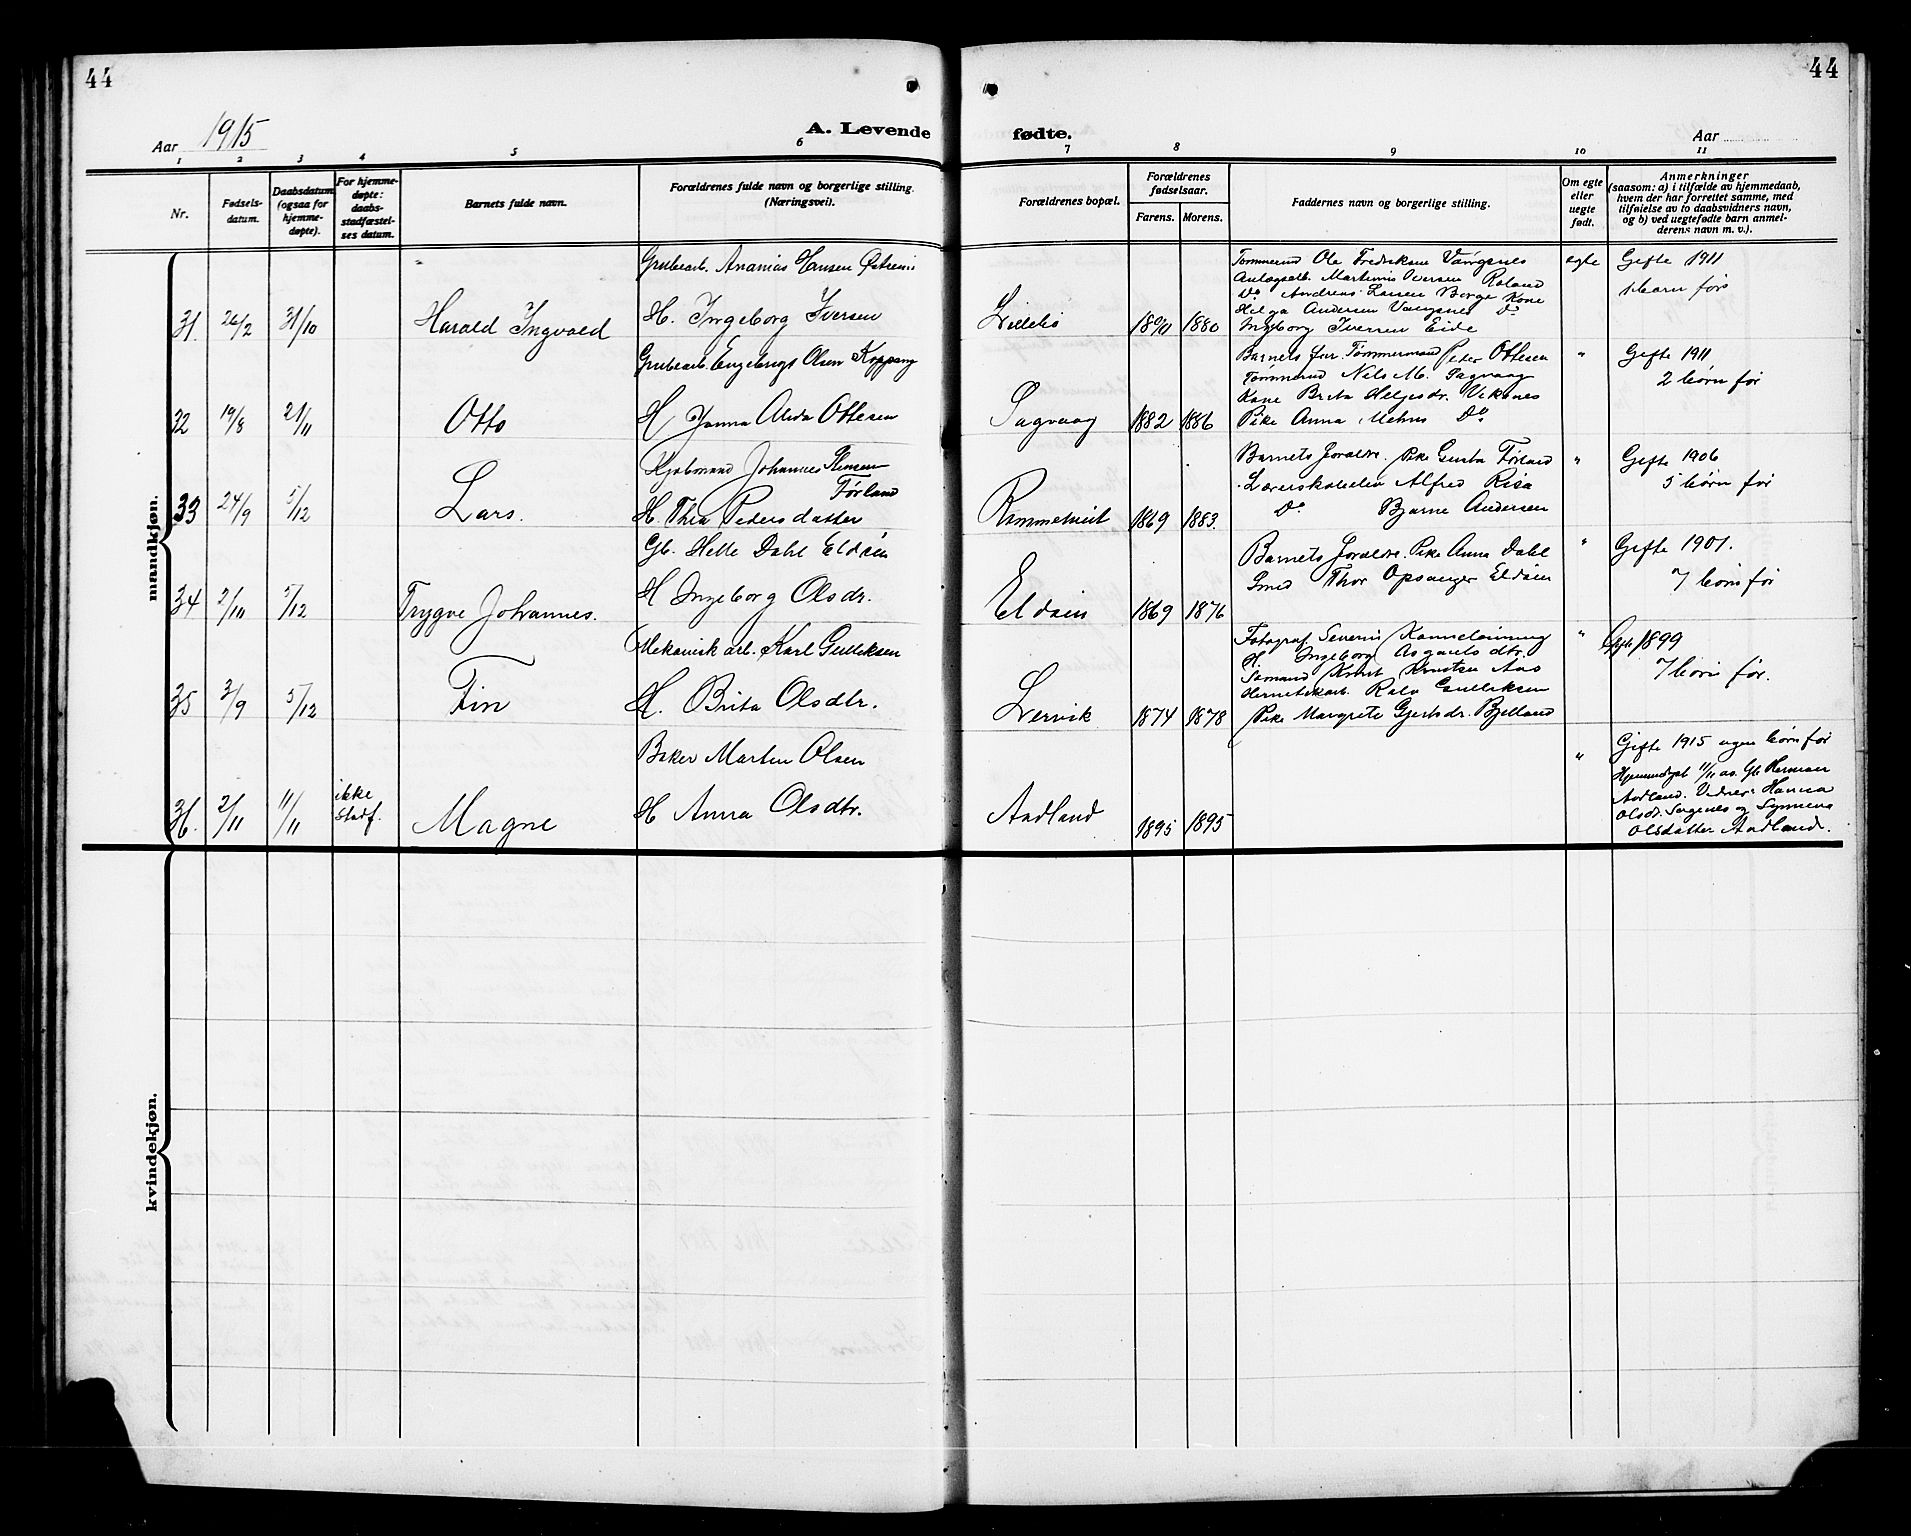 44
44
Aar 1915
A. Levende
fødte.
Aar
1 2 3 4 5 6 7 8 9 10 11
Nr.
Fødsels-
datum.
Daabsdatum
(ogsaa for
hjemme-
døpte).
For hjemme-
døpte:
daabs-
stadfæstel-
ses datum.
Barnets fulde navn.
Forældrenes fulde navn og borgerlige stilling.
(Næringsvei).
Forældrenes bopæl.
Forældrenes
fødselsaar.
Farens. Morens.
Faddernes navn og borgerlige stilling.
Om egte
eller
uegte
født.
Anmerkninger
(saasom: a) i tilfælde av hjemmedaab,
hvem der har forrettet samme, med
tilføielse av to daabsvidners navn,
og b) ved uegtefødte barn anmel-
derens navn m. v.).
mandkjøn.
31. 26/2 31/10 Harald Ingvald
Grubearb. Ananias Hansen
H. Ingeborg Iversen
Lillebø 1880
Tømmermd Ole Fredriksen Vangsnes
Anlagsarb. Martinus Iversen Roland
Do Andreas Larsen Borge Kone
Helga Andersen Vangsnes Do
Ingeborg Iversen Eide
egte
Gifte 1911
1 barn før
32 19/8 21/11 Otto
Grubearb. Engebregt Olsen Koppang
H Janna Alida Ottesen
Sagvaag 1882 1886
Barnets far. Tømmermand Peter Ottesen
Tømmermd Nils M. Sagvaag
Kone Brita Helgesdr. Vikanes
Pike Anna Mehus Do
"
Gifte 1911
2 børn før
33 24/9 5/12 Lars.
Johannes Stensen
Førland
H. Thea Pedersdatter
1869 1883.
Barnets foraldre. Pike Gusta Førland
Lærerskoleelev Alfred Risa
Do Bjarne Andersen
"
Gifte 1906
5 børn før
34 2/10 5/12 Trygve Johannes.
Gb. Helle Dahl Eldøen
H Ingeborg Olsdr.
Eldøen 1869 1876
Barnets foraldre. Pike Anna Dahl
Smed Thor Opsanger Eldøen
"
Gifte 1901.
7 børn før
35 3/9 5/12 Fin
Mekanisk arb. Karl Gulliksen
H. Brita Olsdtr.
Lervik 1874 1878
Fotograf. Severin Kannelønning
H. Ingeborg Asgauts dtr.
Sømand Knut Knutsen Aas
Hermetikarb. Rolv Gulliksen
Pike Margrete Gjertsdr. Bjelland
"
Gifte 1899
7 børn før.
36. 2/11 11/11 ikke
stadf.
Magne
Baker Martin Olsen
H Anna Olsdtr.
Aadland 1895 1895
"
Gifte 1915 ingen børn før
Hjemmedøpt 11/11 av Gb. Herman
Aadland. Vidner: Hanna
Olsdr. Sørgenes og Synneva
Olsdatter Aadland.
kvindekjøn.